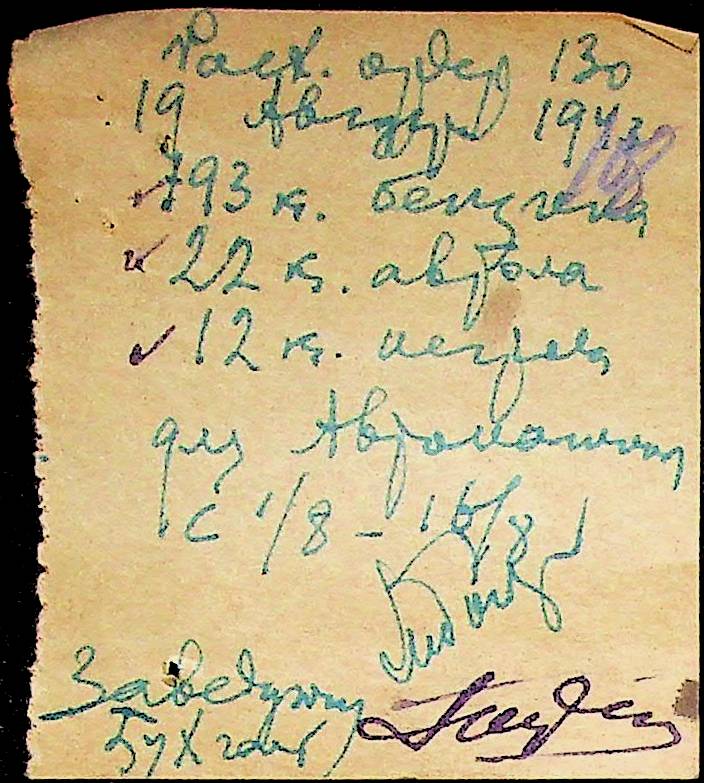 Расх. ордер 130
19 Августа 194
793 кг. бензина
22 кг. автола
12 кг. нигрола
для Автомашины
с 1/8 - 16/8
Заведующий
Бухгалт